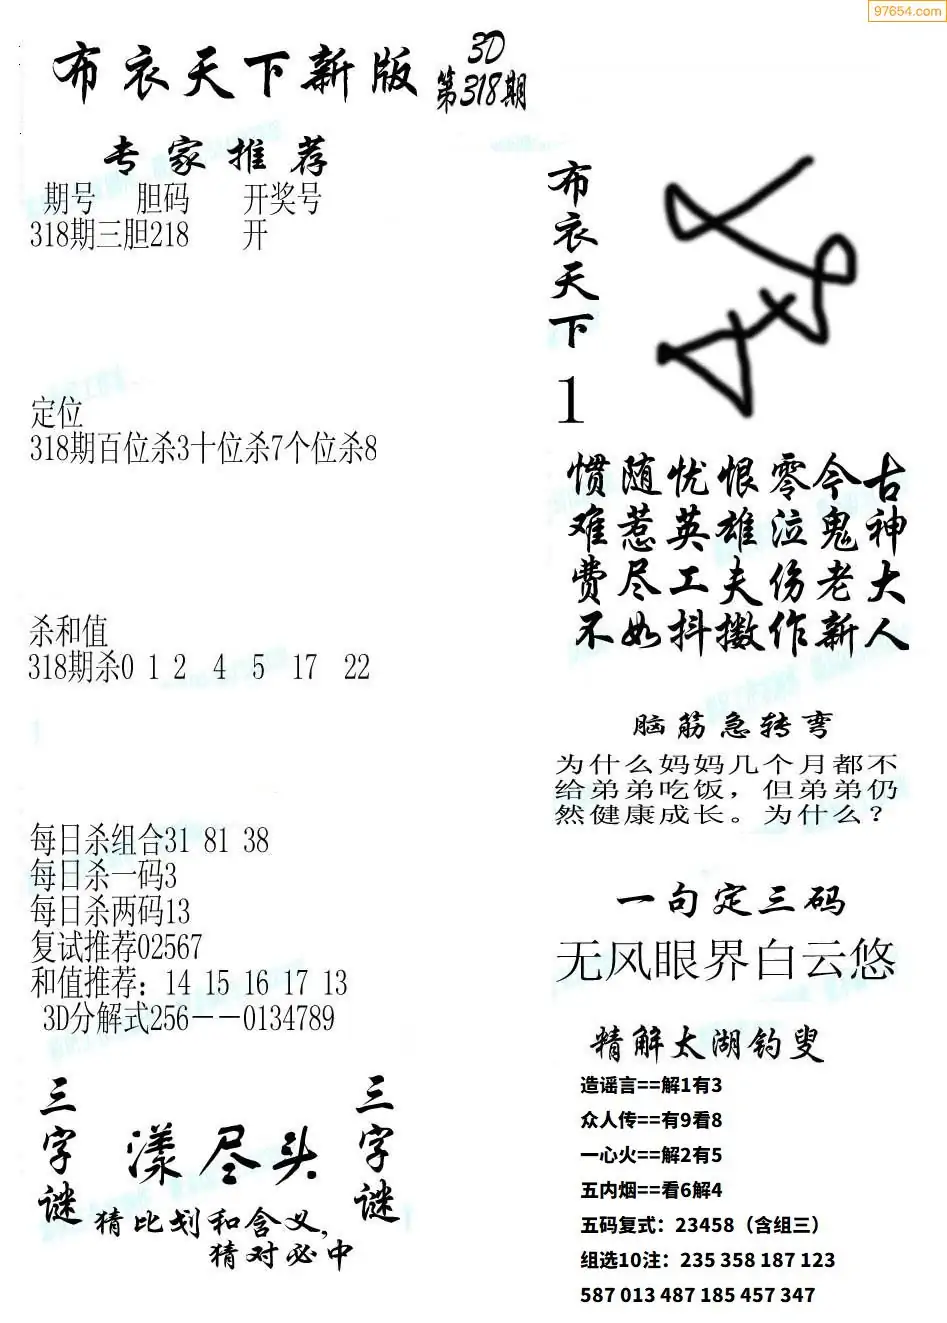 97654.com
布衣天下新版
3D
第318期
专家推荐
期号 胆码 开奖号
318期三胆218 开
定位
318期百位杀3十位杀7个位杀8
杀和值
318期杀0 1 2 4 5 17 22
每日杀组合31 81 38
每日杀一码3
每日杀两码13
复试推荐02567
和值推荐：14 15 16 17 13
3D分解式256－－0134789
三字谜
漾尽头
三字谜
猜比划和含义，
猜对必中
布衣天下
1
惯随忧恨零今古
难惹英雄泣鬼神
费尽工夫伤老大
不如抖擞作新人
脑筋急转弯
为什么妈妈几个月都不
给弟弟吃饭，但弟弟仍
然健康成长。为什么？
一句定三码
无风眼界白云悠
精解太湖钓叟
造谣言==解1有3
众人传==有9看8
一心火==解2有5
五内烟==看6解4
五码复式：23458（含组三）
组选10注：235 358 187 123
587 013 487 185 457 347